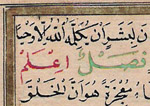 ن لبشر ان يكلمه الله الا وحيا
فصل اعلم
معجزة هو ان الخلق